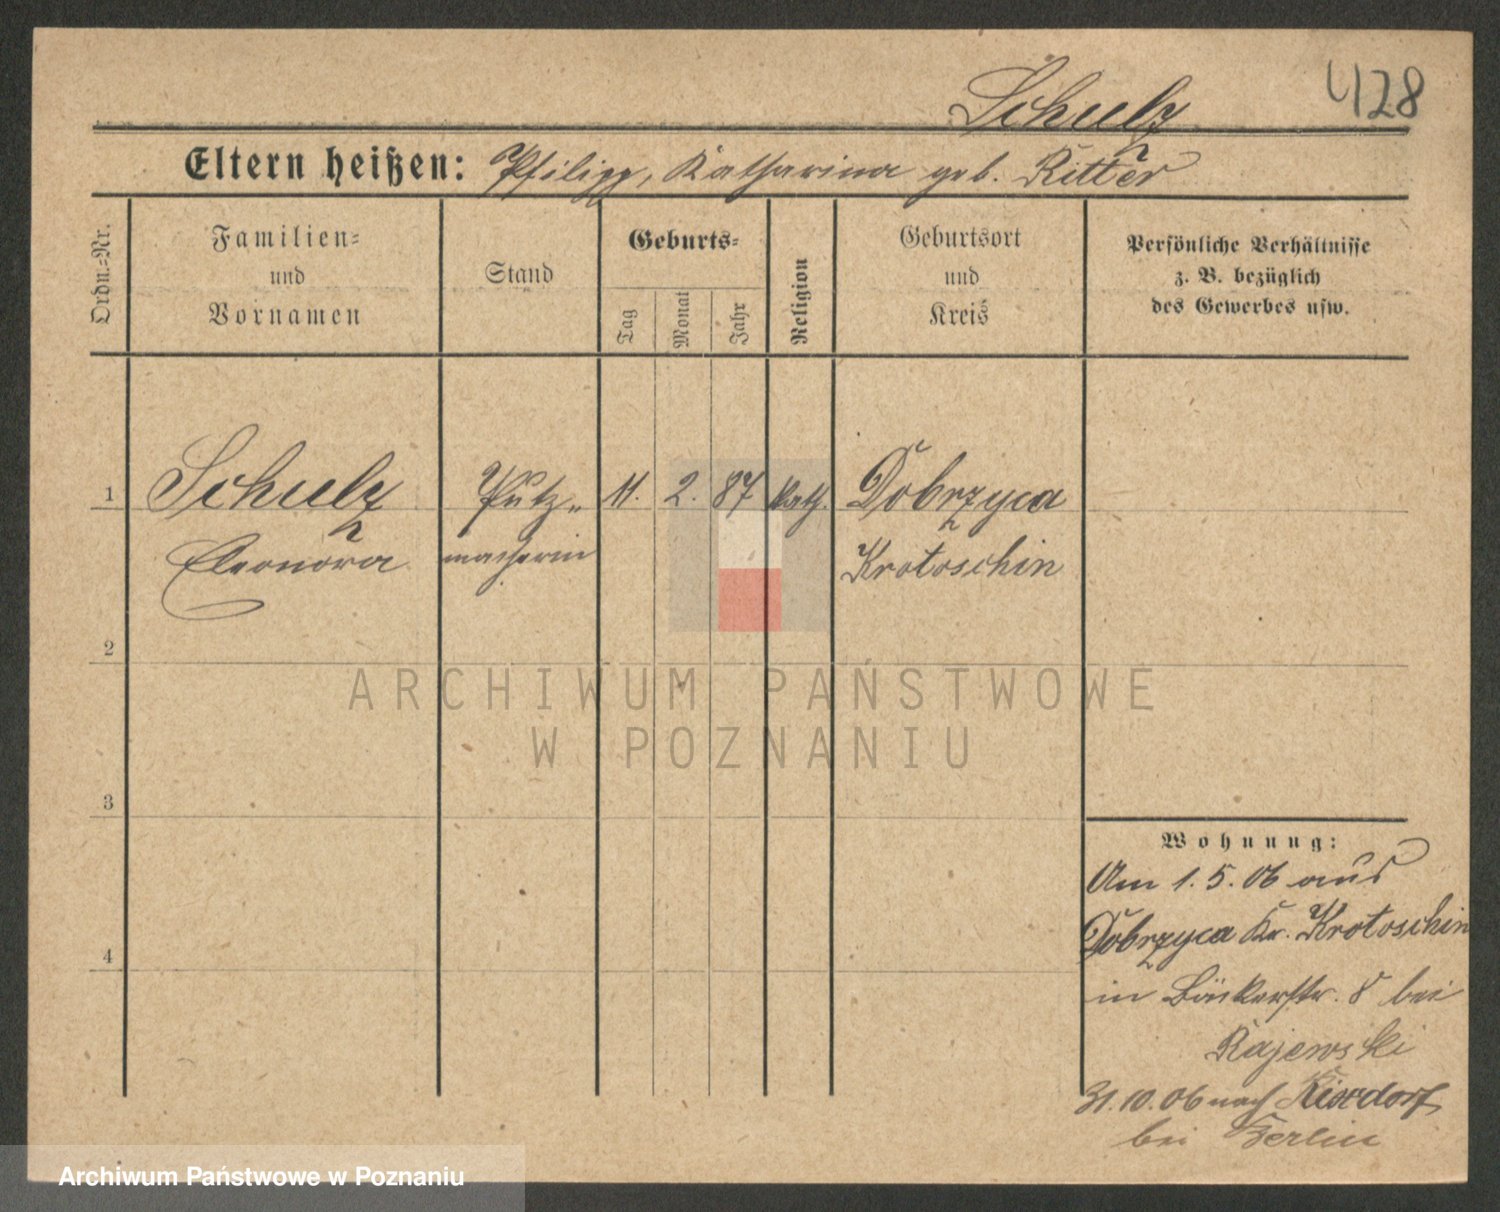 Schulz
428
Eltern heißen: Philipp, Katharina geb. Ritter
Ordn.-Nr.
Familien-
und
Vornamen
Stand
Geburts-
Tag
Monat
Jahr
Religion
Geburtsort
und
Kreis
Persönliche Verhältnisse
z. B. bezüglich
des Gewerbes usw.
1
Schulz
Eleonora
Putz-
macherin
11.
2.
87
kath.
Dobrzyca
Krotoschin
2
3
4
ARCHIWUM PAŃSTWOWE
W POZNANIU
Wohnung:
Am 1.5.06 aus
Dobrzyca Kr. Krotoschin
in Bäckerstr. 8 bei
Rajewski
31.10.06 nach Rixdorf
bei Berlin
Archiwum Państwowe w Poznaniu